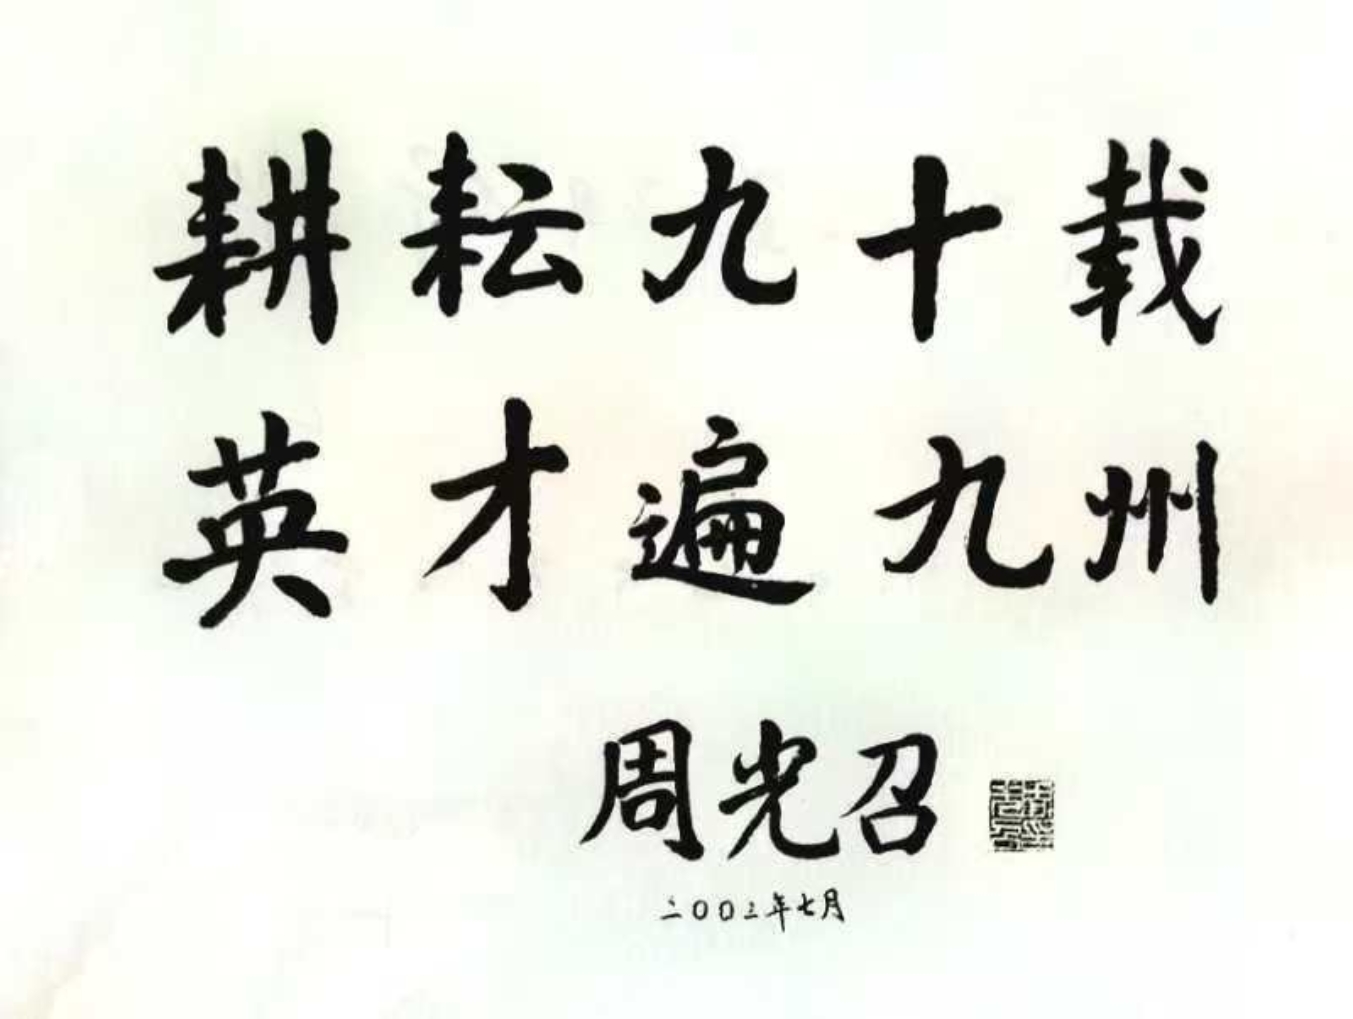 耕耘九十载
英才遍九州
周光召
二00三年七月